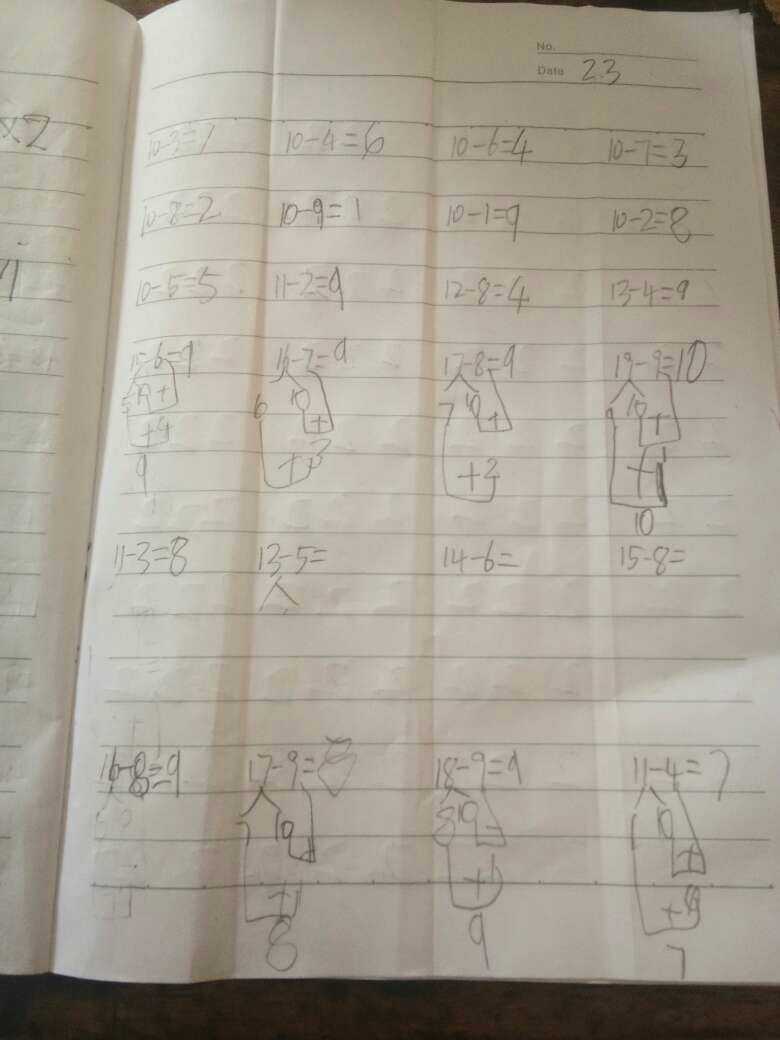 No.
Date 23
×2
10-3=7 10-4=6 10-6=4 10-7=3
10-8=2 10-9=1 10-1=9 10-2=8
10-5=5 11-2=9 12-8=4 13-4=9
15-6=9 16-7=9 17-8=9 19-9=10
5 10 + 6 10 + 7 10 + 9 10 +
+4 +3 +2 +1
9 10
11-3=8 13-5= 14-6= 15-8=
16-8=9 17-9=8 18-9=9 11-4=7
7 10 8 10 1 10 +
+1 +1
8 9 7